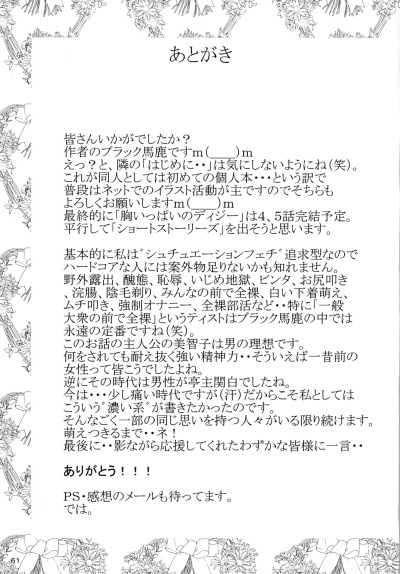 あとがき
皆さんいかがでしたか？
作者のブラック馬鹿ですm(____)m
えっ？と、隣の「はじめに・・」は気にしないようにね（笑）。
これが同人としては初めての個人本・・・という訳で
普段はネットでのイラスト活動が主ですのでそちらも
よろしくお願いしますm(____)m
最終的に「胸いっぱいのディジー」は４、５話完結予定。
平行して「ショートストーリーズ」を出そうと思います。
基本的に私は”シュチュエーションフェチ”追求型なので
ハードコアな人には案外物足りないかも知れません。
野外露出、醜態、恥辱、いじめ地獄、ビンタ、お尻叩き
、浣腸、陰毛剃り、みんなの前で全裸、白い下着萌え、
ムチ叩き、強制オナニー、全裸部活など・・特に「一般
大衆の前で全裸」というテイストはブラック馬鹿の中では
永遠の定番ですね（笑）。
このお話の主人公の美智子は男の理想です。
何をされても耐え抜く強い精神力・・そういえば一昔前の
女性って皆こうでしたよね。
逆にその時代は男性が亭主関白でしたね。
今は・・・少し痛い時代ですが（汗）だからこそ私としては
こういう”濃い系”が書きたかったのです。
そんなごく一部の同じ思いを持つ人々がいる限り続けます。
萌えつきるまで・・ネ！
最後に・・影ながら応援してくれたわずかな皆様に一言・・
ありがとう！！！
PS・感想のメールも待ってます。
では。
61